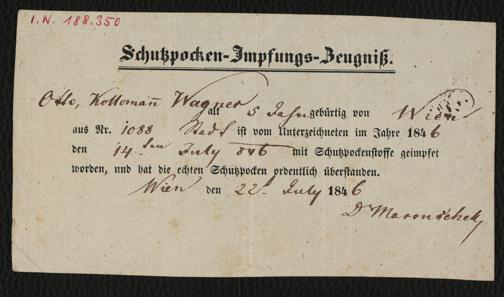 I. N. 188.350
Schutzpocken-Impfungs-Zeugniß.
Otto, Kolloman Wagner alt 5 Jahr gebürtig von Wien
aus Nr. 1088 Stadt ist vom Unterzeichneten im Jahre 1846
den 14ten July 846 mit Schutzpockenstoffe geimpfet
worden, und hat die echten Schutzpocken ordentlich überstanden.
Wien den 22t July 1846
Dr Maronschek